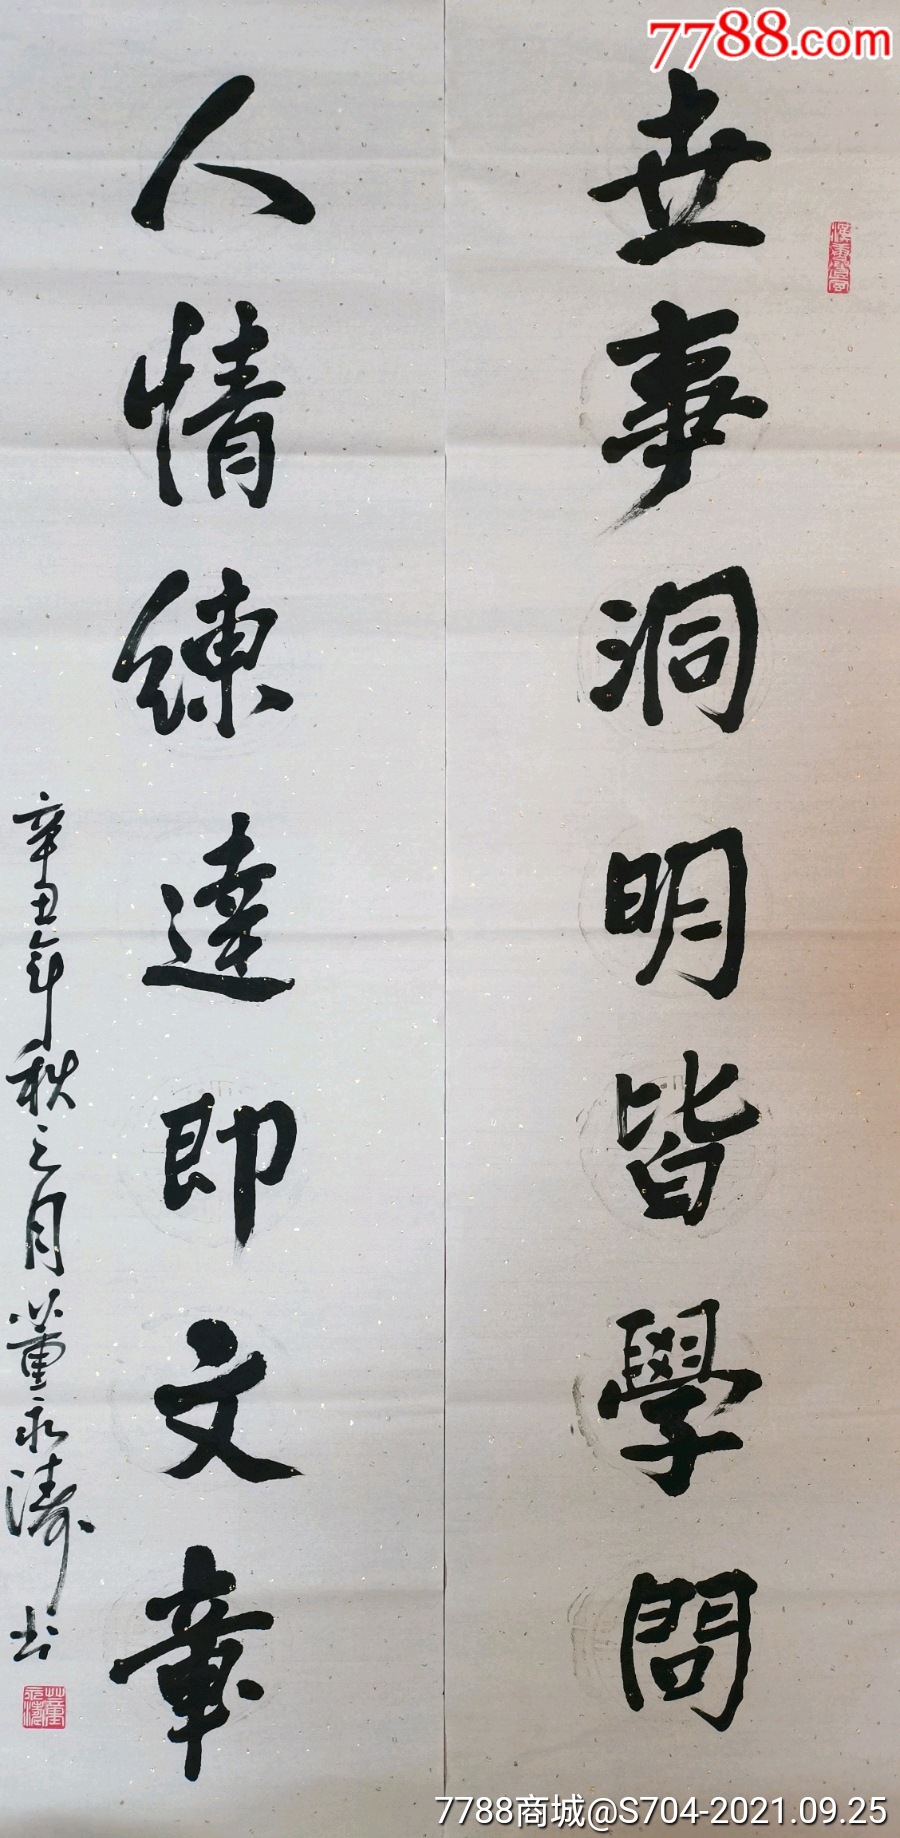 7788.com
世事洞明皆學問
人情練達即文章
辛丑年秋之月董永濤书
董永濤
7788商城@S704-2021.09.25